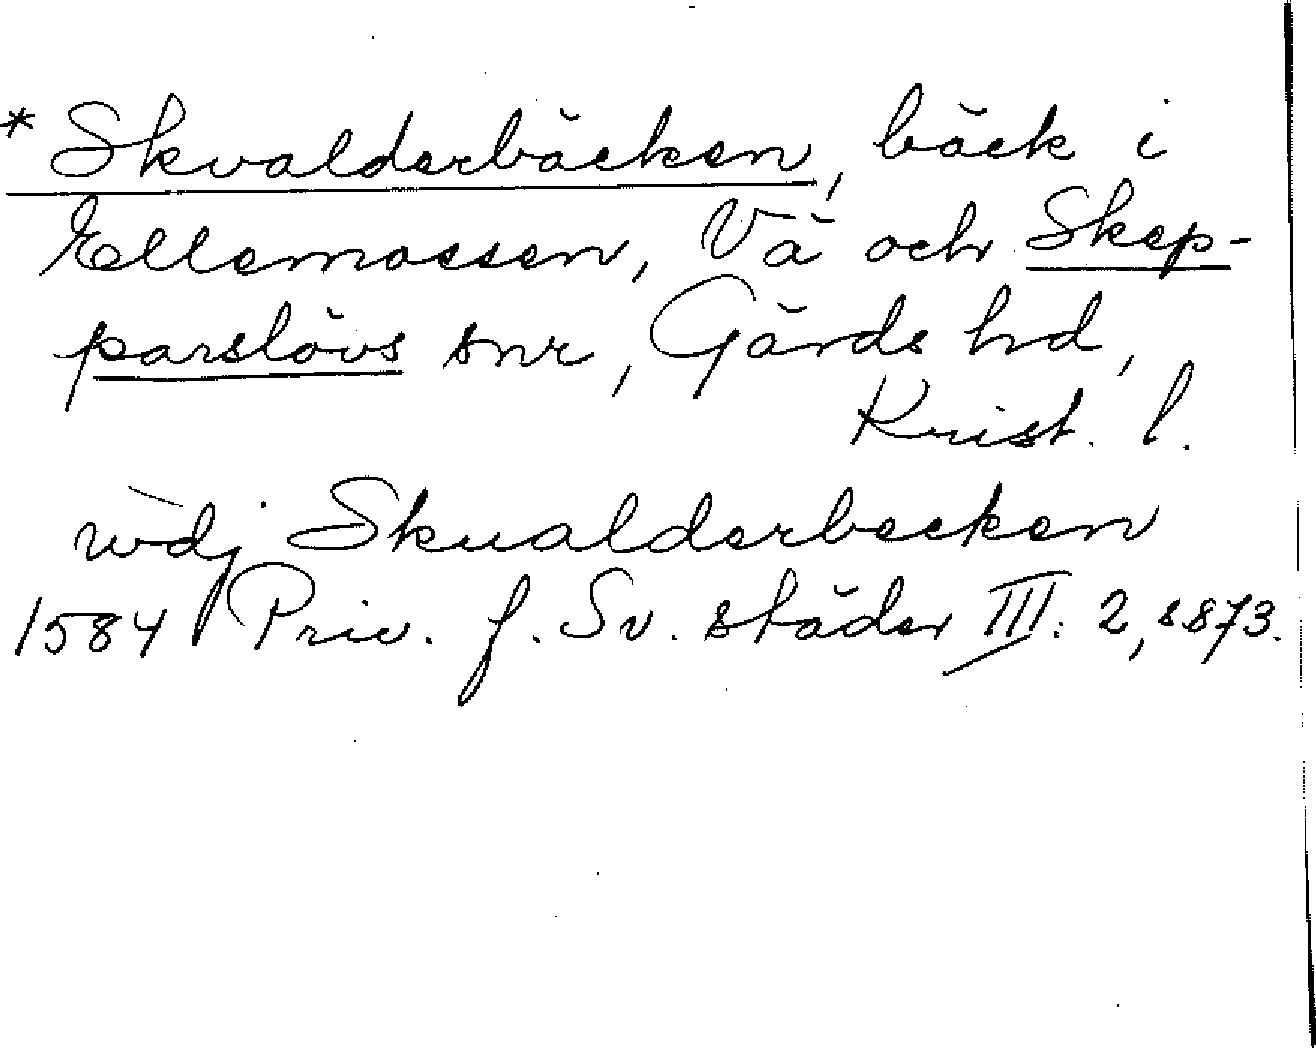 * Skvalderbäcken, bäck i
Ellemossen, Vä och Skep-
parslövs snr, Gärds hd,
Krist. l.
wdj Skualderbecken
1584 Priv. f. Sv. städer III: 2, s 873.